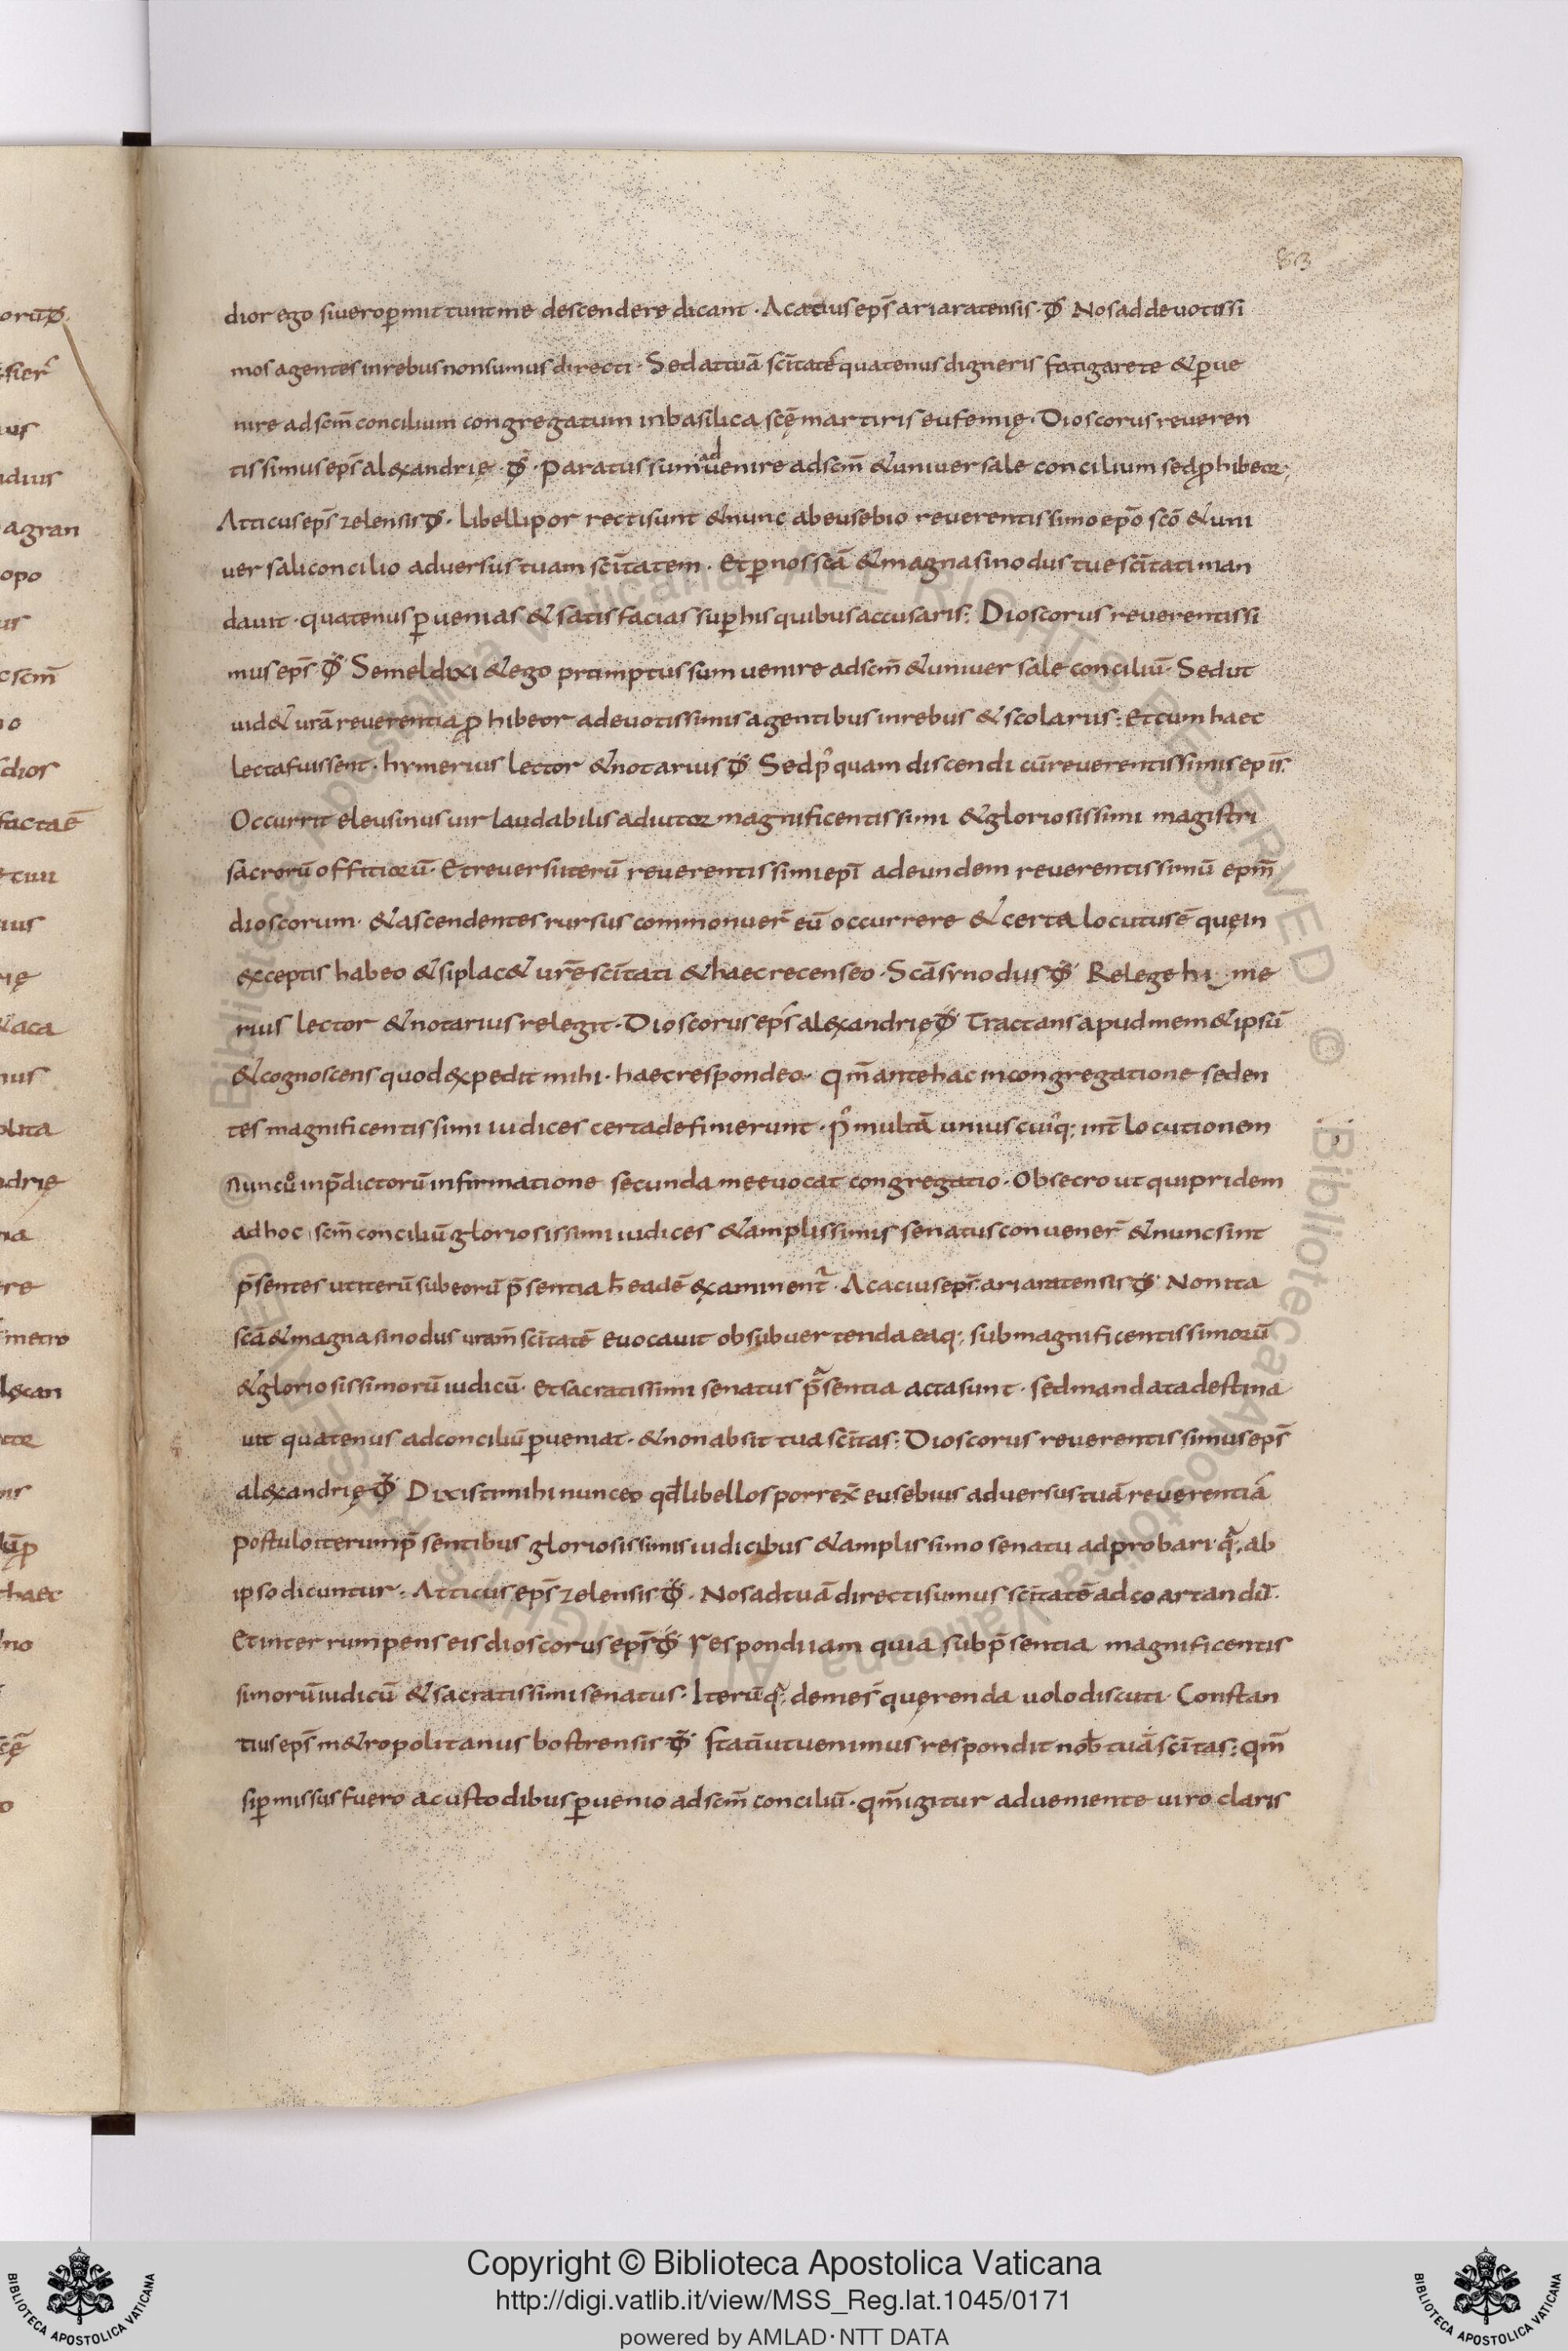 83
dior ego si uero pmittunt me descendere dicant · Acatius eps̄ ariaratensis · đ Nos ad deuotissi
mos agentes in rebus non sumus directi · Sed at tuā sc̄itatē quatenus digneris fatigare te & pue
nire ad sc̄m concilium congregatum in basilica sc̄ę martiris eufemię · Dioscorus reueren
tissimus eps̄ alexandrię · đ · paratus sum aduenire ad sc̄m & uniuersale concilium sed phibeor ;
Atticus eps̄ zelensis đ · Libelli porrecti sunt & nunc ab eusebio reuerentissimo ep̄o sc̄o & uni
uersali concilio aduersus tuam sc̄itatem · Et p nos sc̄ā & magna sinodus tue sc̄itati man
dauit · quatenus puenias & satisfacias sup his quibus accusaris : Dioscorus reuerentissi
mus eps̄ đ Semel dixi & ego prumptus sum uenire ad sc̄m & uniuersale conciliū · Sed ut
uid& ur̄ā reuerentia phibeor a deuotissimis agentibus in rebus & scolariis : Et cum haec
lecta fuissent · hymerius lector & notarius đ Sed p' quam discendi cū reuerentissimis ep̄is ·
Occurrit eleusinus uir laudabilis adiutor magnificentissimi & gloriosissimi magistri
sacrorū offitiorū · Et reuersi iterū reuerentissimi ep̄i ad eundem reuerentissimū ep̄m
dioscorum · & ascendentes rursus commonuer̄ eū occurrere & certa locutus ē quę in
exceptis habeo & si plac& ur̄ę sc̄itati & haec recenseo · Sc̄ā synodus đ Relege hi me
rius lector & notarius relegit · Dioscorus eps̄ alexandrię đ Tractans apud mem& ipsū
& cognoscens quod expedit mihi · haec respondeo · Qm̄ ante hac in congregatione seden
tes magnificentissimi iudices certa definierunt · p' multā unius cuiq; int̄locutionem
nunc ů in p̄dictorū infirmatione secunda me euocat congregatio · Obsecro ut qui pridem
ad hoc sc̄m conciliū gloriosissimi iudices & amplissimis senatus conuener̄ & nunc sint
p̄sentes ut iterū sub eorū p̄sentia h̄ eadē examinent̄ · Acacius eps̄ ariaratensis đ Non ita
sc̄ā & magna sinodus uram̄ sc̄itatē euocauit ob subuertenda eaq; sub magnificentissimorū
& gloriosissimorū iudicū · Et sacratissimi senatus p̄sentia acta sunt · sed mandata destina
uit quatenus ad conciliū pueniat · & non absit tua sc̄itas : Dioscorus reuerentissimus eps̄
alexandrię đ Dixisti mihi nunc eo qđ libellos porrex̄ eusebius aduersus tuā reuerentiā
postulo iterum p̄sentibus gloriosissimis iudicibus & amplissimo senatu adprobari q̄; ab
ipso dicuntur : Atticus eps̄ zelensis đ · Nos ad tuā directi sumus sc̄itatē ad coartandū ·
Et interrumpens eis dioscorus eps̄ đ respondi iam quia sub p̄sentia magnificentis
simorū iudicū & sacratissimi senatus · Iterū q̄; de mes̄ quęrenda uolo discuti · Constan
tius eps̄ m&ropolitanus bostrensis đ Stati ut uenimus respondit nob̄ tuā sc̄itas : qm̄
si pmissus fuero a custodibus puenio ad sc̄m conciliū · qm̄ igitur adueniente uiro claris
Copyright © Biblioteca Apostolica Vaticana
http://digi.vatlib.it/view/MSS_Reg.lat.1045/0171
powered by AMLAD·NTT DATA